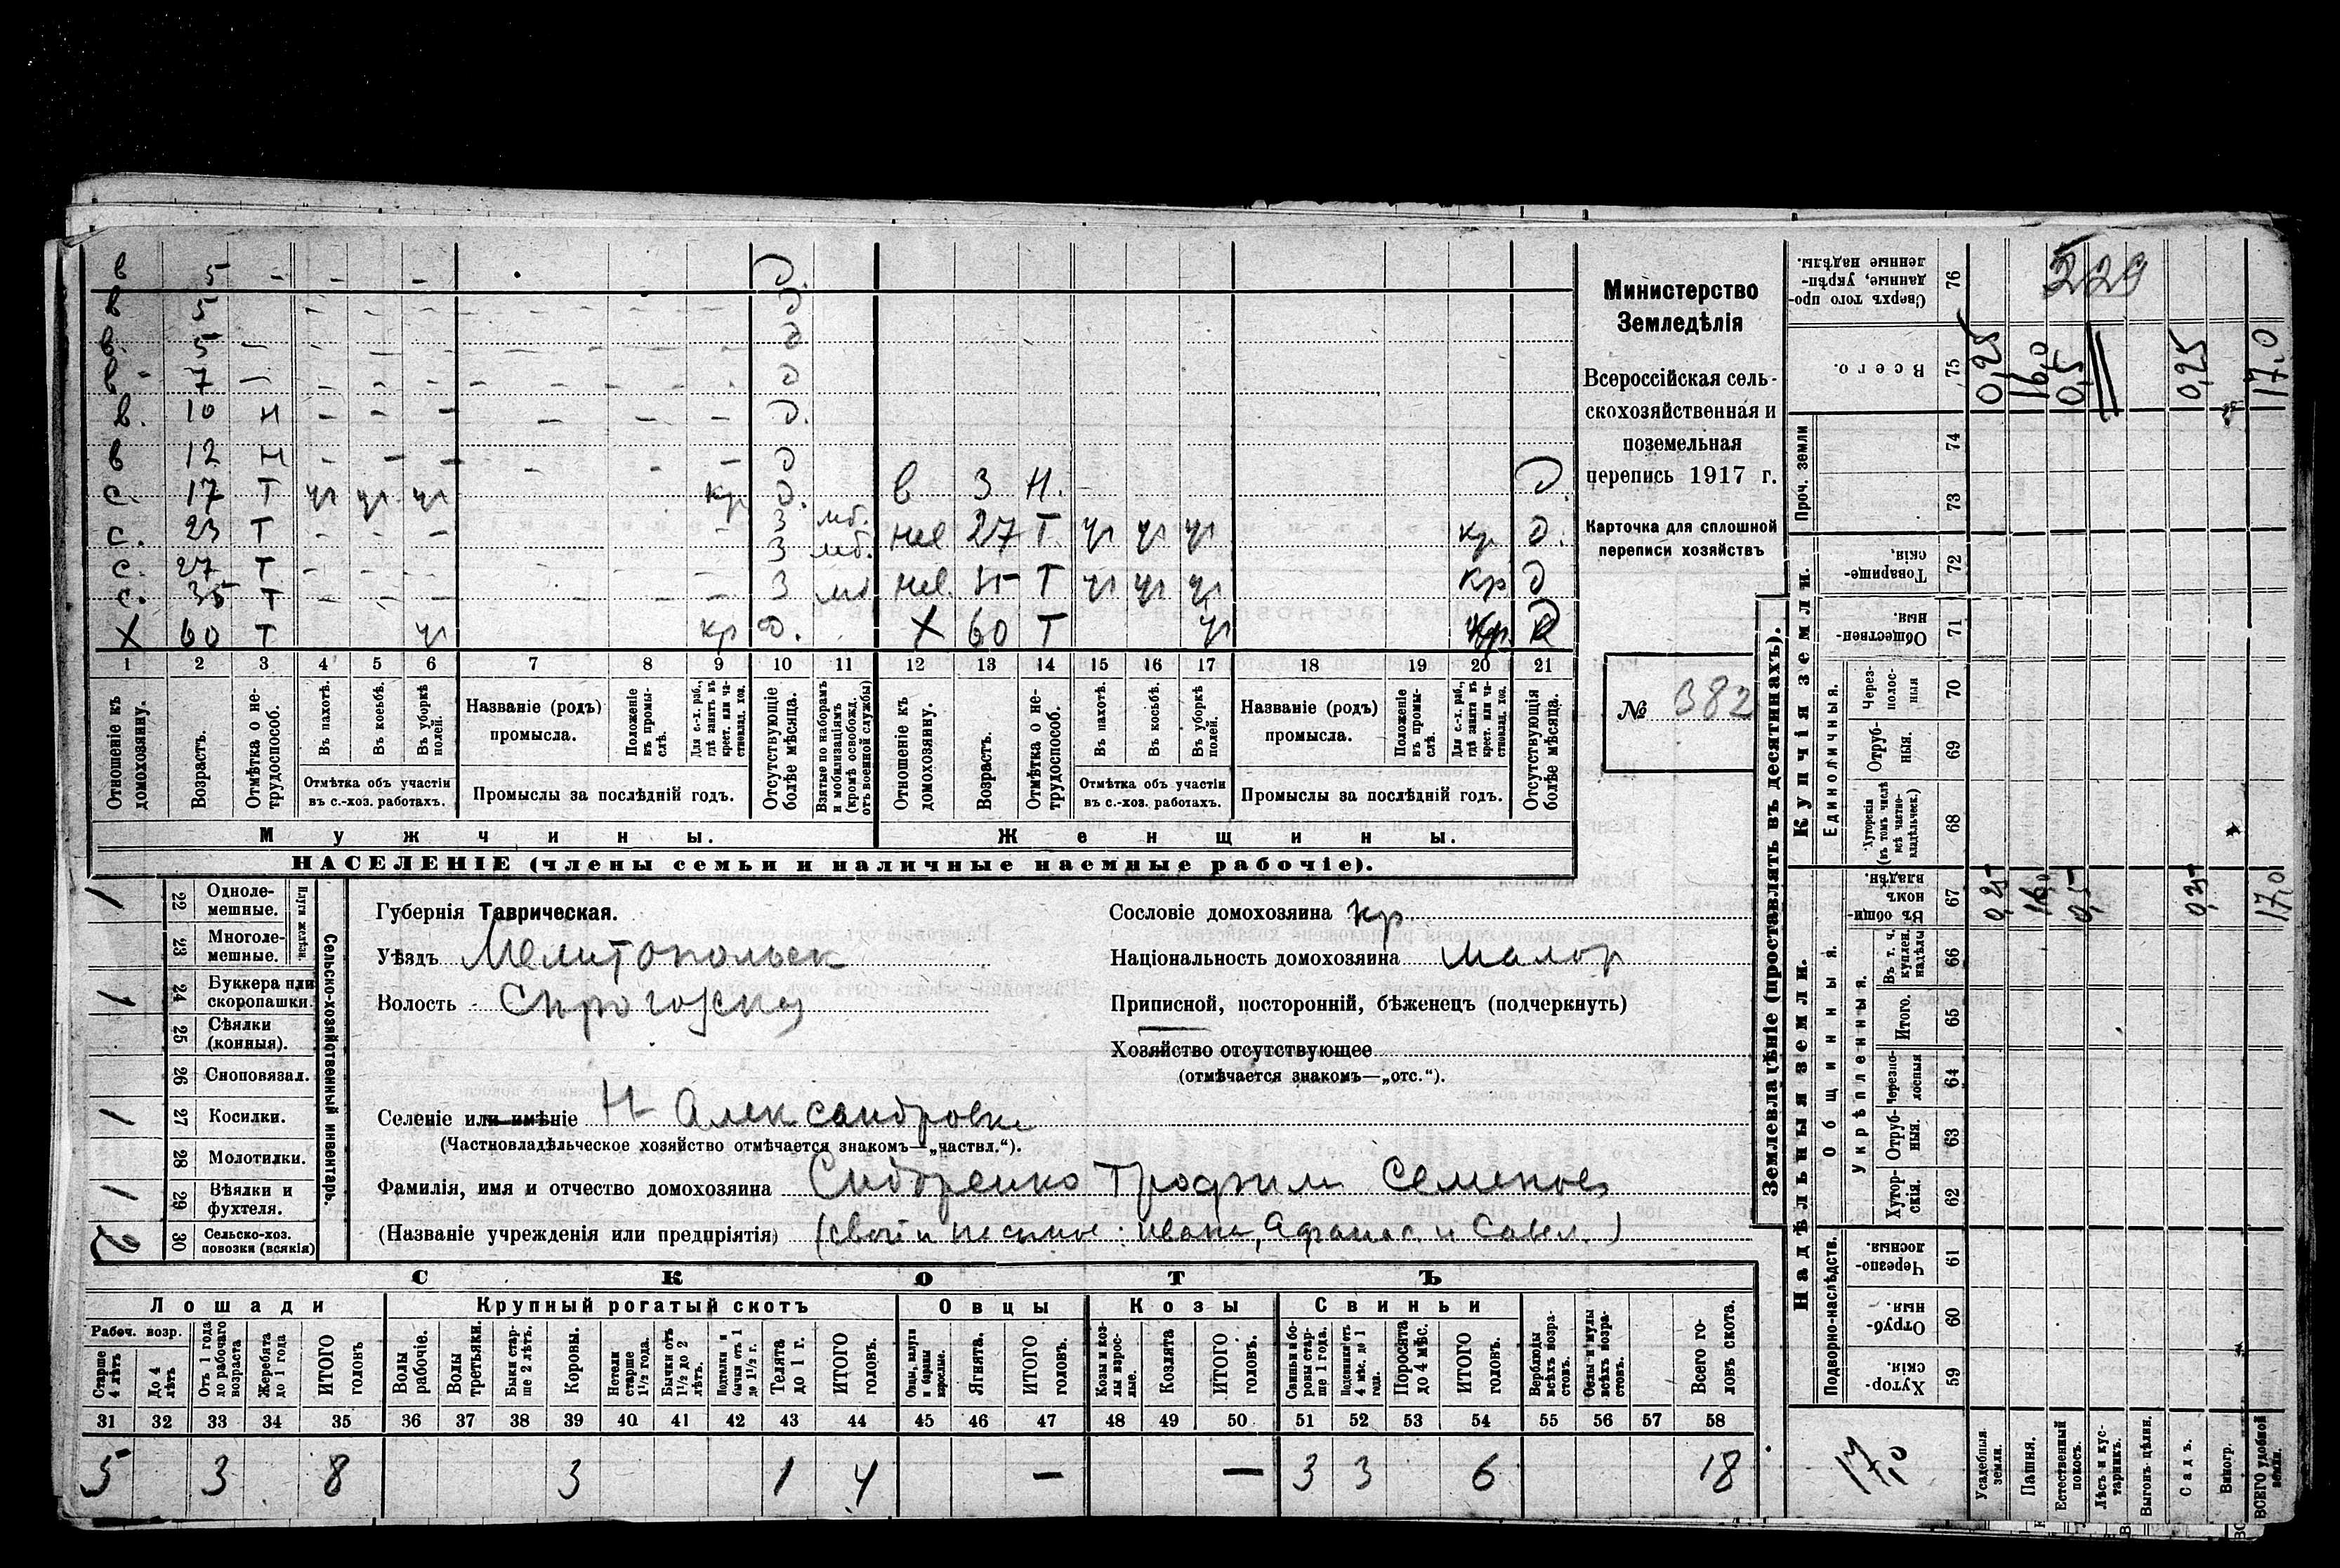 в 5 - - - - д.
в 5 - - - - - - - - д
в. 5 - - - - - - - - д
в - 7 - - - - - - - - д
в. 10 н - - - - - - д.
в 12 н - - - - - - д
с. 17 т уч уч уч кр д. в 3 н. - д.
с. 23 т - - - - 3 мб. нев 27 т уч уч уч кр д.
с. 27 т - - - - 3 мб.
с. 35 т - - - - - - 3 мб нев. т уч уч уч кр д
х 60 т уч кр д. х 60 т уч кр.
1 2 3 4 5 6 7 8 9 10 11 12 13 14 15 16 17 18 19 20 21
Отношеніе къ домохозяину.
Возрастъ.
Отмѣтка о не-
трудоспособ.
Въ пахотѣ.
Въ косьбѣ.
Въ уборкѣ
полей.
Отмѣтка объ участіи
въ с.-хоз. работахъ.
Названіе (родъ)
промысла.
Положеніе
въ промы-
слѣ.
Для с.-х. раб.,
гдѣ занятъ въ
крест. или ча-
стновлад. хоз.
Промыслы за послѣдній годъ.
Отсутствующіе
болѣе мѣсяца.
Взятые по наборамъ
и мобилизаціямъ
(кромѣ освобожд.
отъ военной службы)
Отношеніе къ
домохозяину.
Возрастъ.
Отмѣтка о не-
трудоспособ.
Въ пахотѣ.
Въ косьбѣ.
Въ уборкѣ
полей.
Отмѣтка объ участіи
въ с.-хоз. работахъ.
Названіе (родъ)
промысла.
Положеніе
въ промы-
слѣ.
Для с.-х. раб.,
гдѣ занята въ
крест. или ча-
стновлад. хоз.
Промыслы за послѣдній годъ.
Отсутствующія
болѣе мѣсяца.
Мужчины. Женщины.
НАСЕЛЕНІЕ (члены семьи и наличные наемные рабочіе).
Министерство
Земледѣлія
Всероссійская сель-
скохозяйственная и
поземельная
перепись 1917 г.
Карточка для сплошной
переписи хозяйствъ
№ 382
1 22 Одноле-
мешные.
23 Многоле-
мешные.
1 24 Буккера или
скоропашки.
25 Сѣялки
(конныя).
26 Сноповязал.
1 27 Косилки.
28 Молотилки.
1 29 Вѣялки и
фухтеля.
2 30 Сельско-хоз.
повозки (всякія)
Сельско-хозяйственный инвентарь.
Губернія Таврическая.
Уѣздъ Мелитопольск
Волость
Селеніе или имѣніе Н Александровка
(Частновладѣльческое хозяйство отмѣчается знакомъ—„частвл.“).
Фамилія, имя и отчество домохозяина Сидоренко Трофим Семенов
(Названіе учрежденія или предпріятія) Иван, Афанас. и Савел.)
Сословіе домохозяина кр
Національность домохозяина малор
Приписной, посторонній, бѣженец (подчеркнуть)
Хозяйство отсутствующее
(отмѣчается знакомъ—„отс.“).
СКОТЪ
Лошади Крупный рогатый скотъ Овцы Козы Свиньи
Рабоч. возр.
Старше
4 лѣтъ
До 4
лѣтъ
Отъ 1 года
до рабочаго
возраста
Жеребята
до 1 года
ИТОГО
головъ
Волы
рабочіе.
Волы
третьяки.
Быки стар-
ше 2 лѣтъ.
Коровы.
Нетели
старше
1½ года.
Бычки отъ
1½ до 2
лѣтъ.
Подтелки и
бычки отъ 1
до 1½ г.
Телята
до 1 г.
ИТОГО
головъ.
Овцы, валухи
и бараны
взрослые.
Ягнята.
ИТОГО
головъ.
Козы и коз-
лы взрос-
лые.
Козлята
ИТОГО
головъ.
Свиньи и бо-
ровы стар-
ше 1 года.
Подсвинки отъ
4 мѣс. до 1
года.
Поросята
до 4 мѣс.
ИТОГО
головъ.
Верблюды
всѣхъ возра-
стовъ.
Ослы и мулы
всѣхъ возра-
стовъ.
Всего го-
ловъ скота.
31 32 33 34 35 36 37 38 39 40 41 42 43 44 45 46 47 48 49 50 51 52 53 54 55 56 57 58
5 3 8 3 1 4 — — 3 3 6 18
Землевладѣніе (проставлять въ десятинахъ).
Надѣльныя земли. Купчія земли.
Проч. земли
Сверхъ того про-
данные, укрѣп-
ленные надѣлы.
76 229
Всего.
75 0,25 16,0 0,5 0,25 17,0
74
73
Товарище-
скія.
72
Обществен-
ныя.
71
Единоличныя.
Через-
полос-
ныя
70
Отруб-
ныя.
69
Хуторскія
(въ томъ числѣ
всѣ частно-
владѣльческ.)
68
Общинныя.
Въ общин-
номъ
владѣн.
67 0,25 16,0 0,5 0,25 17,0
Въ т. ч.
куплен.
надѣлы
66
Укрѣпленныя.
Итого.
65
Черезпо-
лосныя
64
Отруб-
ныя.
63
Хутор-
скія.
62
Подворно-наслѣдств.
Черезпо-
лосныя.
61
Отруб-
ныя.
60
Хутор-
скія.
59
17,0
Усадебныя
земли.
Пашня.
Естественный
покосъ.
Лѣсъ и кус-
тарникъ.
Выгонъ цѣлин.
Садъ.
Виногр.
ВСЕГО удобной
земли.